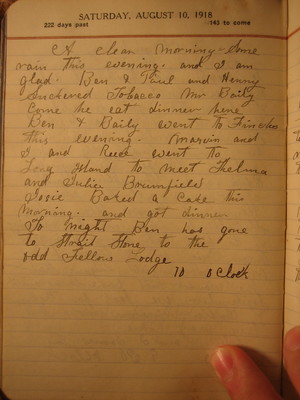 SATURDAY, AUGUST 10, 1918
222 days past 143 to come
A Clean Morning. Some
rain this evening. and I am
glad. Ben & Paul and Henry
Suckered Tobacco Mr Baily
Come he eat dinner here
Ben & Baily went to Finches
this evening. Marvin and
I and Reece went to
Long Island to meet Thelma
and Julia Brumfield
Josie Baked a Cake this
Morning. and got dinner
To night Ben has gone
to Strait Stone to the
odd Fellows Lodge
10 o Clock